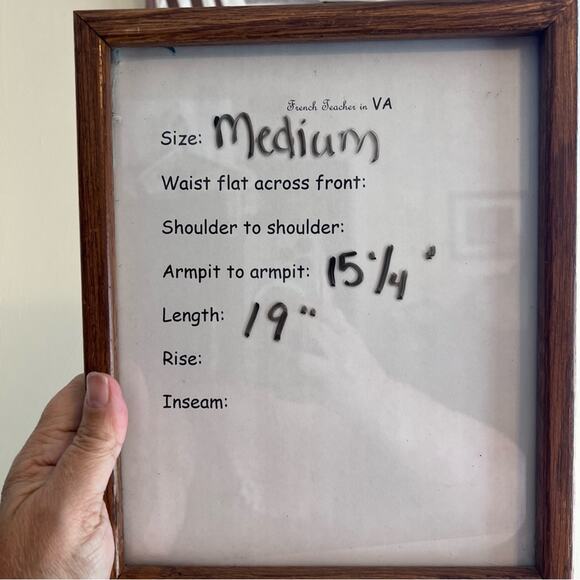 French Teacher in VA
Size: Medium
Waist flat across front:
Shoulder to shoulder:
Armpit to armpit: 15 1/4"
Length: 19"
Rise:
Inseam: